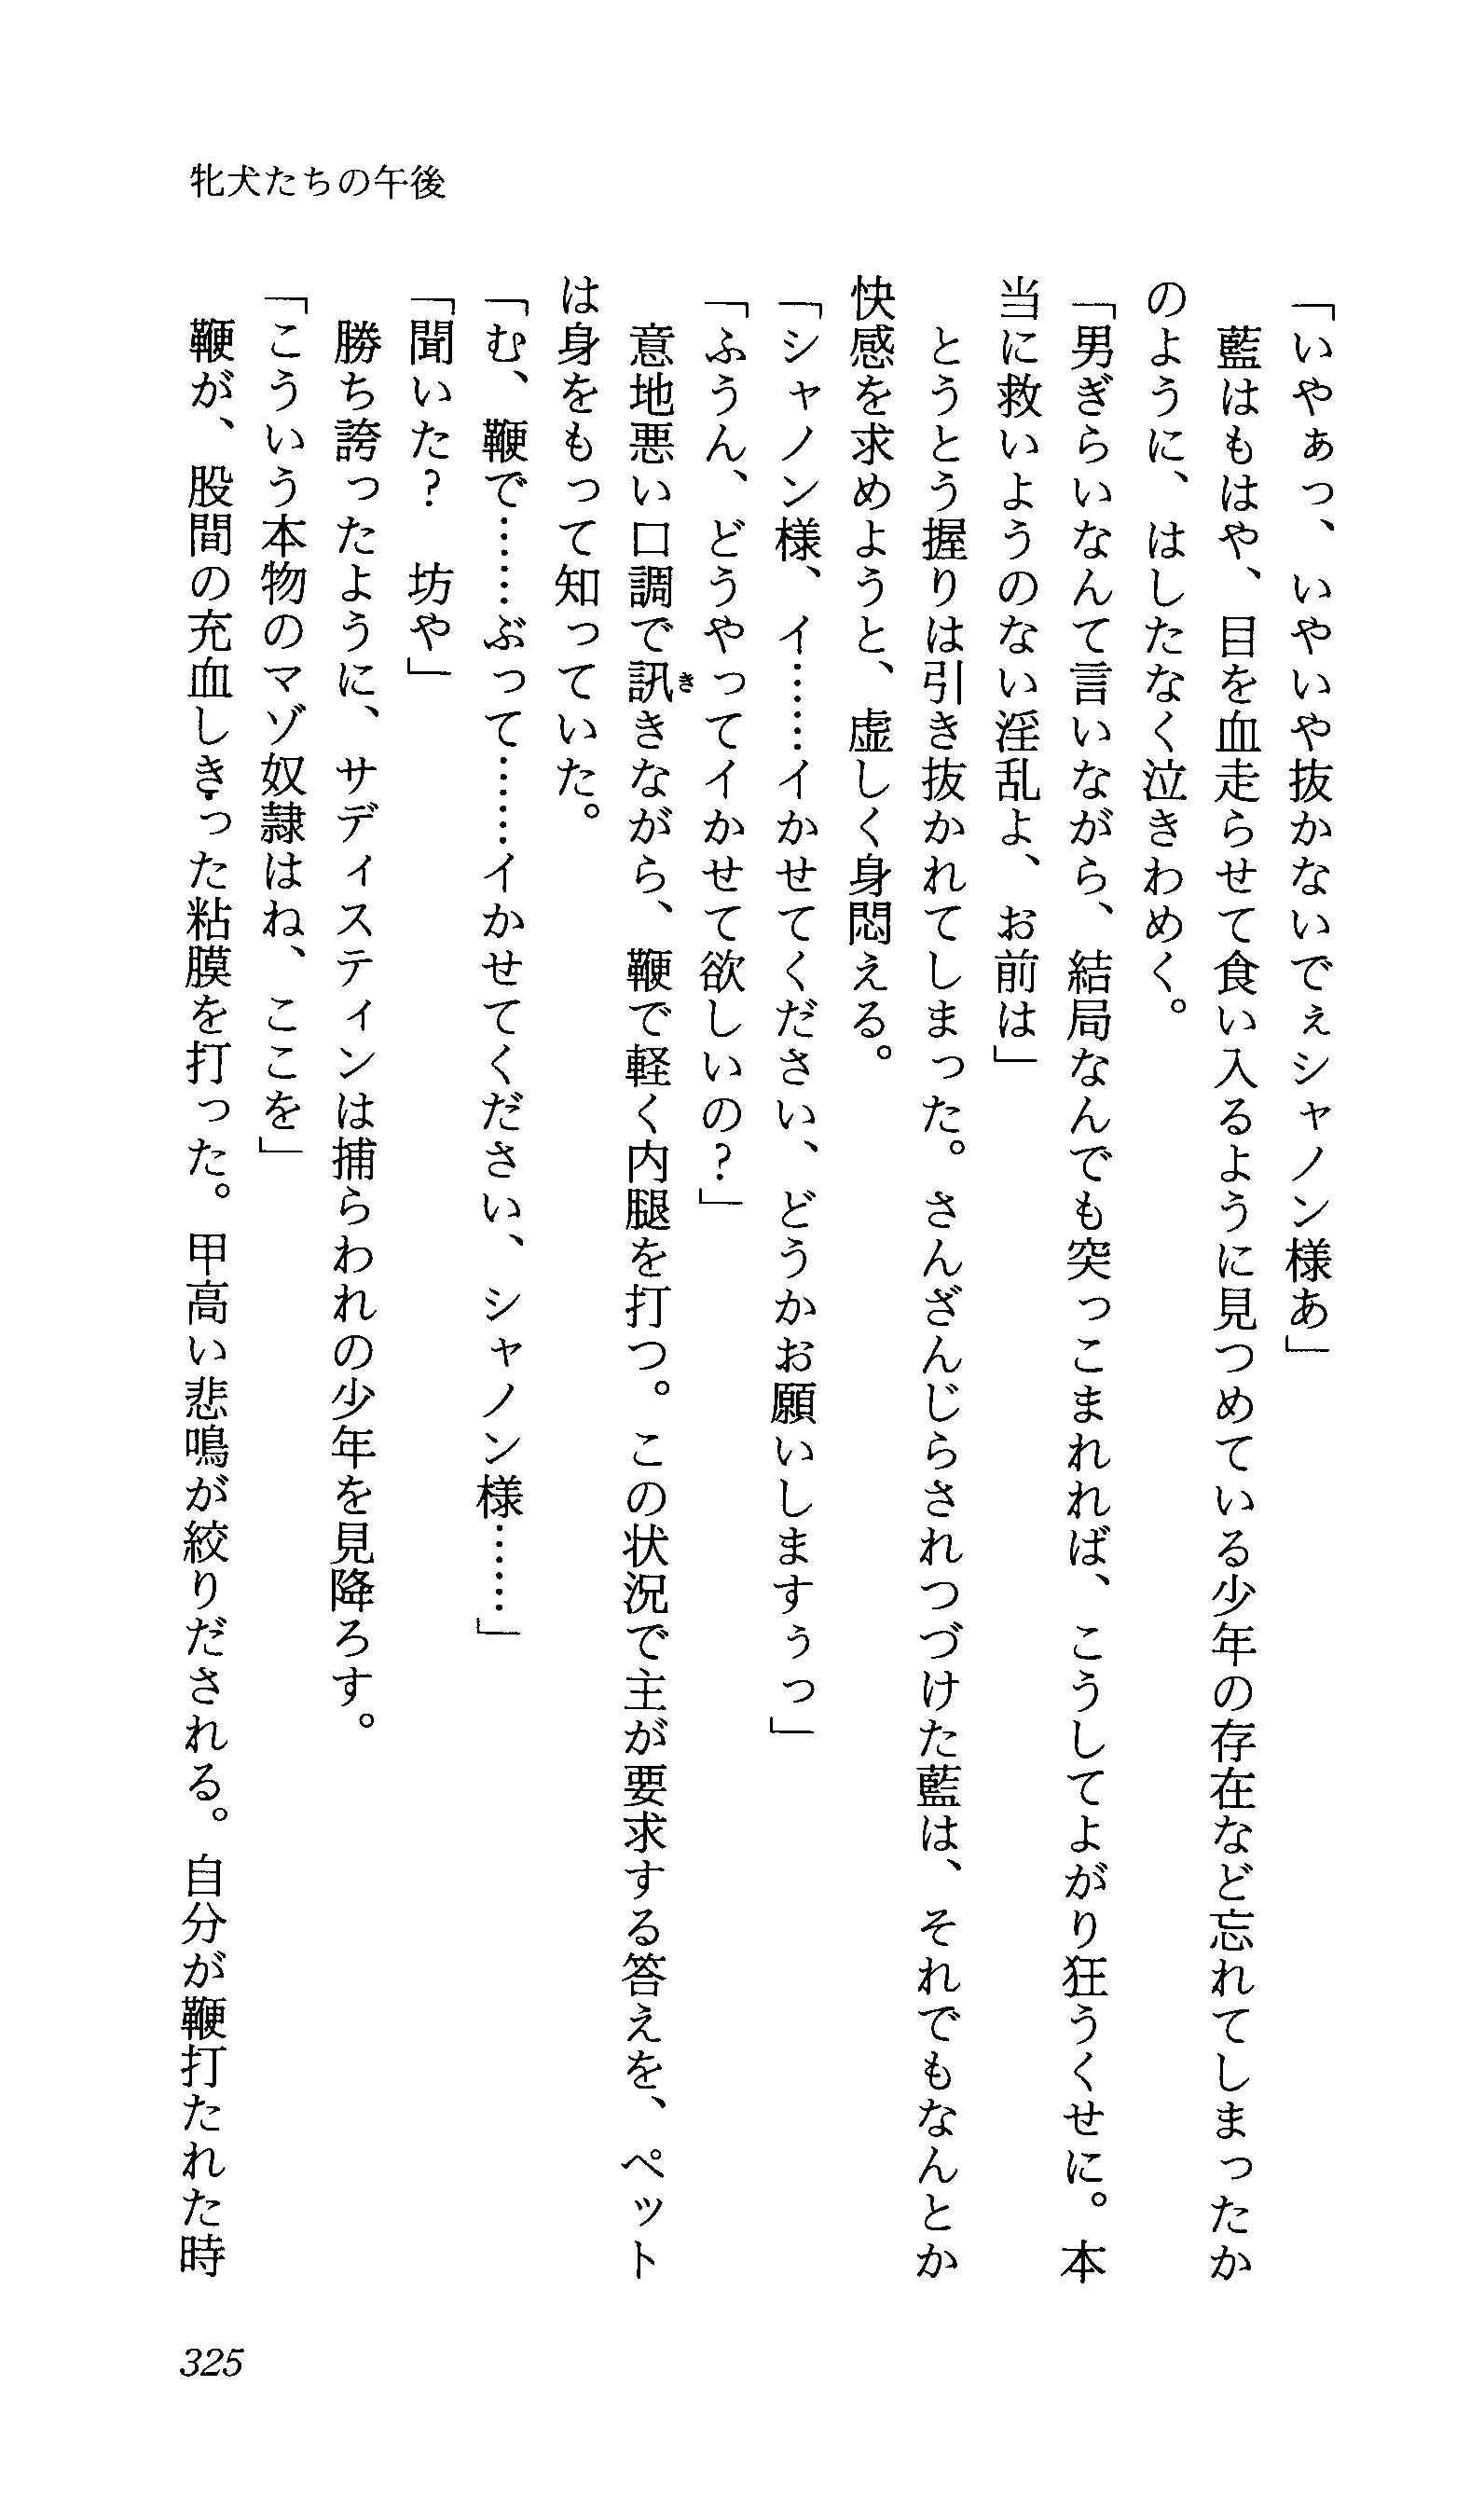 牝犬たちの午後
「いやぁっ、いやいや抜かないでぇシャノン様あ」
藍はもはや、目を血走らせて食い入るように見つめている少年の存在など忘れてしまったか
のように、はしたなく泣きわめく。
「男ぎらいなんて言いながら、結局なんでも突っこまれれば、こうしてよがり狂うくせに。本
当に救いようのない淫乱よ、お前は」
とうとう握りは引き抜かれてしまった。さんざんじらされつづけた藍は、それでもなんとか
快感を求めようと、虚しく身悶える。
「シャノン様、イ……イかせてください、どうかお願いしますぅっ」
「ふうん、どうやってイかせて欲しいの?」
意地悪い口調で訊きながら、鞭で軽く内腿を打つ。この状況で主が要求する答えを、ペット
は身をもって知っていた。
「む、鞭で……ぶって……イかせてください、シャノン様……」
「聞いた?　坊や」
勝ち誇ったように、サディスティンは捕らわれの少年を見降ろす。
「こういう本物のマゾ奴隷はね、ここを」
鞭が、股間の充血しきった粘膜を打った。甲高い悲鳴が絞りだされる。自分が鞭打たれた時
325